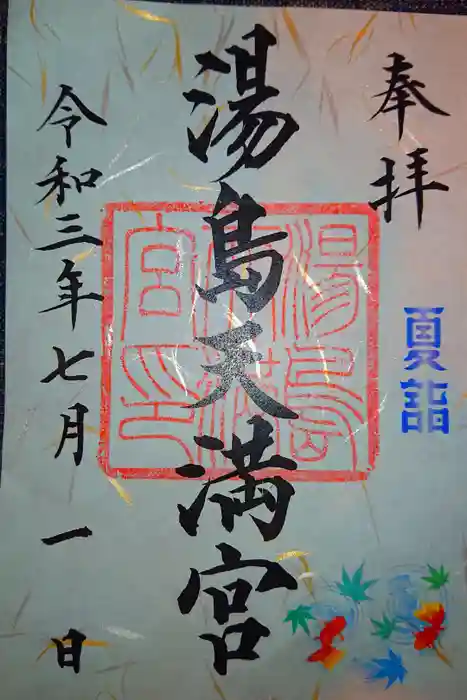 奉拝
夏詣
湯島天満宮
湯島天満宮印
令和三年七月一日